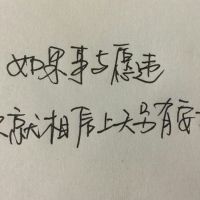 如果事与愿违
就相信上天另有安